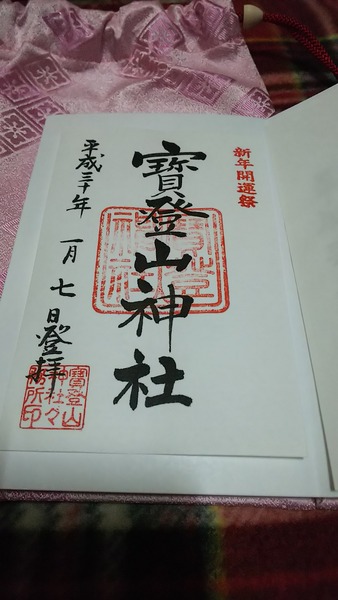 新年開運祭
寶登山神社
平成三十年 一月七日登拝
寶登山
神社々
務所印